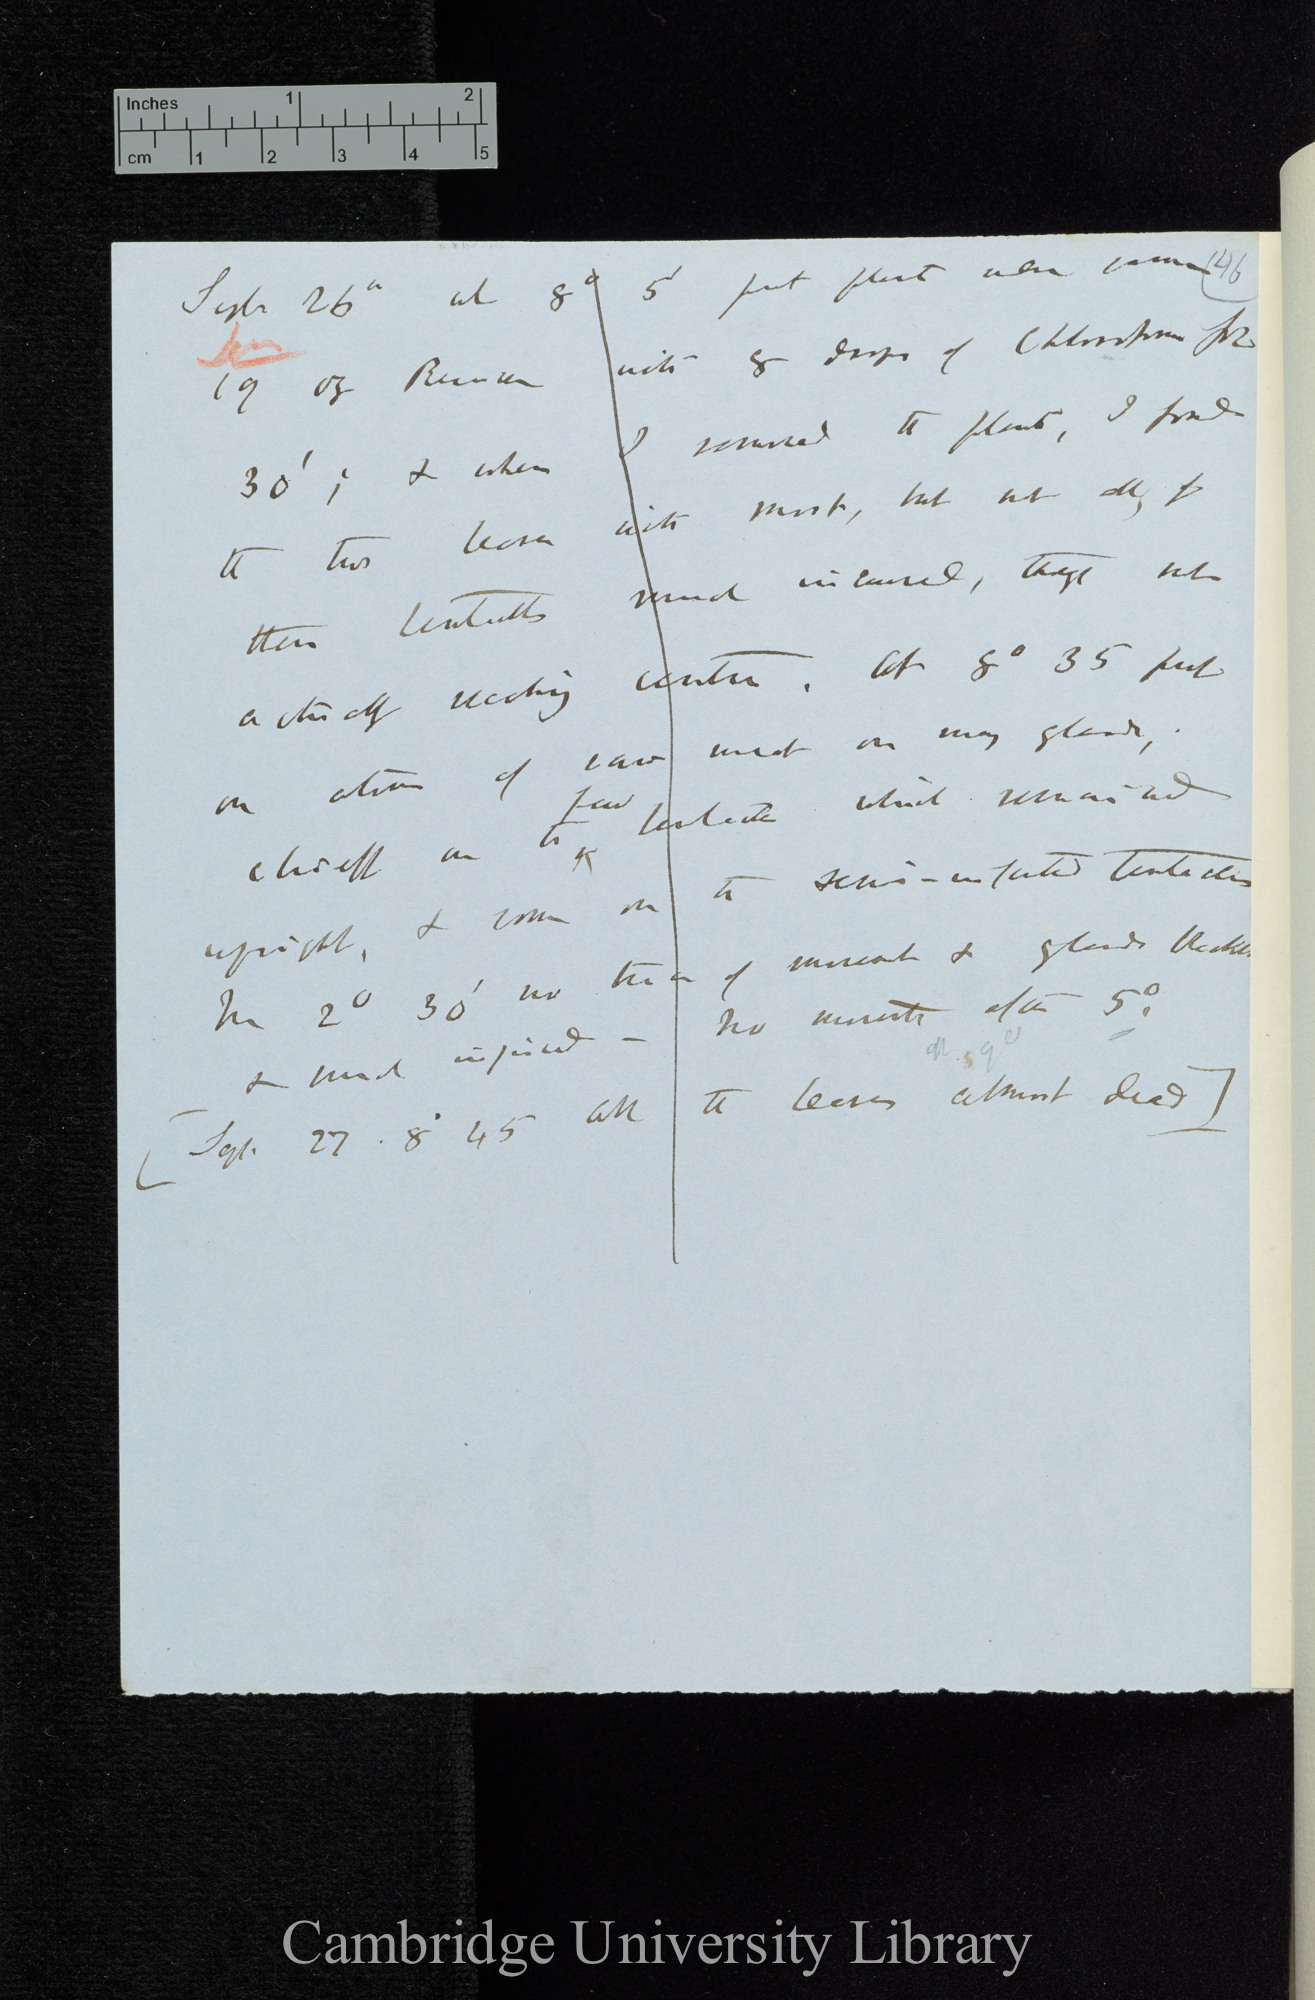 Inches 1 2
cm 1 2 3 4 5
146
Sept 26th at 8° 5' put plant under same
19 oz with 8 drops of Chloroform for
30'; & when I removed the plant, I found
the two leaves with most, but not all, of
their tentacles much incurved, though not
actually reaching centre. At 8° 35 put
on atoms of raw meat on many glands,
chiefly on the few tentacles which remained
upright, & some on the semi-inflected tentacles
In 2° 30' no trace of movement & glands blackened
& much injured — No movement after 5°.
[Sept. 27. 8° 45 all the leaves almost dead]
Cambridge University Library